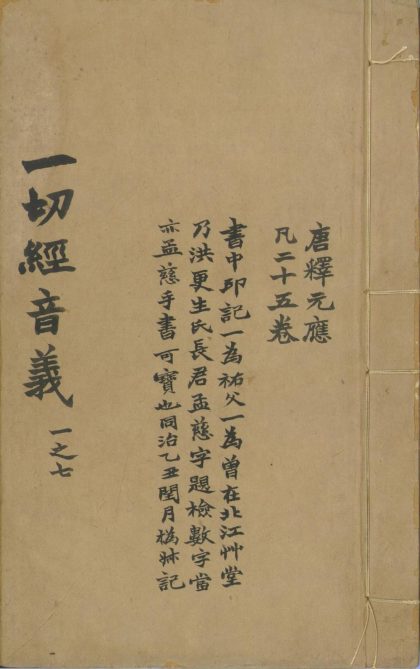 唐釋元應
凡二十五卷
書中印記一為祐父一為曾在北江艸堂
乃洪更生氏長君孟慈字題檢數字當
亦孟慈手書可寶也同治乙丑閏月撝尗記
一切經音義 一之七